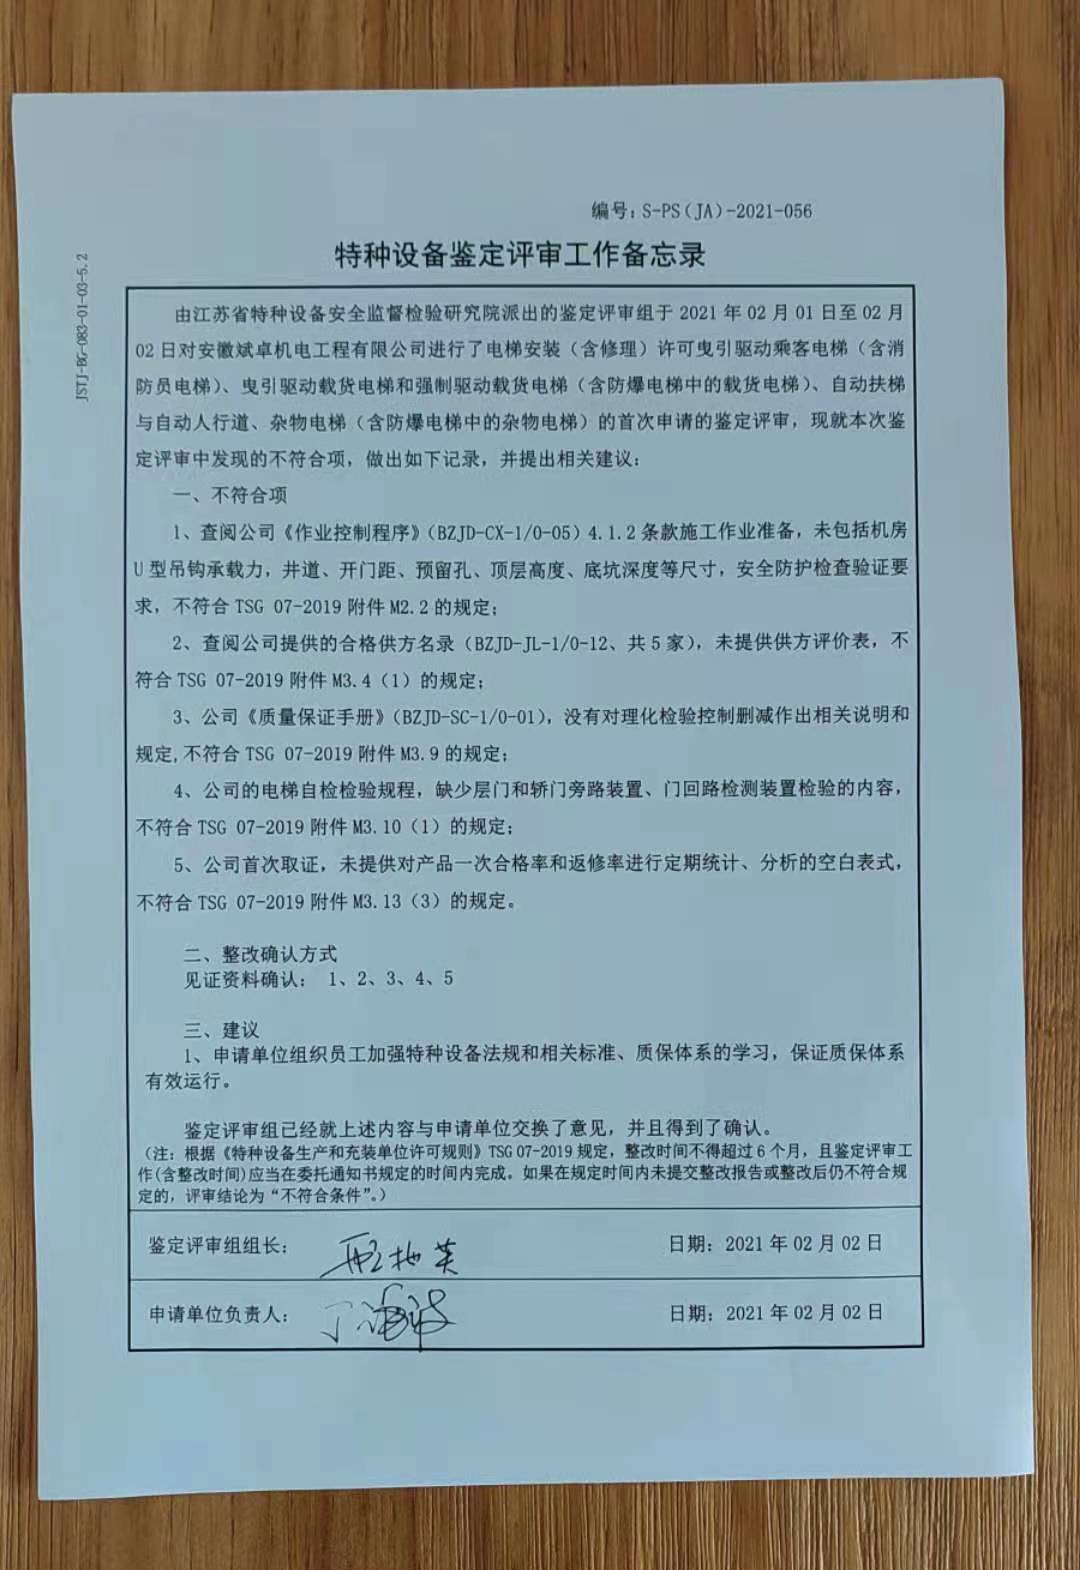 编号：S-PS（JA）-2021-056
特种设备鉴定评审工作备忘录
JSTJ-BG-083-01-03-5.2
由江苏省特种设备安全监督检验研究院派出的鉴定评审组于 2021 年 02 月 01 日至 02 月
02 日对安徽斌卓机电工程有限公司进行了电梯安装（含修理）许可曳引驱动乘客电梯（含消
防员电梯）、曳引驱动载货电梯和强制驱动载货电梯（含防爆电梯中的载货电梯）、自动扶梯
与自动人行道、杂物电梯（含防爆电梯中的杂物电梯）的首次申请的鉴定评审，现就本次鉴
定评审中发现的不符合项，做出如下记录，并提出相关建议：
一、不符合项
1、查阅公司《作业控制程序》（BZJD-CX-1/0-05）4.1.2 条款施工作业准备，未包括机房
U 型吊钩承载力，井道、开门距、预留孔、顶层高度、底坑深度等尺寸，安全防护检查验证要
求，不符合 TSG 07-2019 附件 M2.2 的规定；
2、查阅公司提供的合格供方名录（BZJD-JL-1/0-12、共 5 家），未提供供方评价表，不
符合 TSG 07-2019 附件 M3.4（1）的规定；
3、公司《质量保证手册》（BZJD-SC-1/0-01），没有对理化检验控制删减作出相关说明和
规定,不符合 TSG 07-2019 附件 M3.9 的规定；
4、公司的电梯自检检验规程，缺少层门和轿门旁路装置、门回路检测装置检验的内容，
不符合 TSG 07-2019 附件 M3.10（1）的规定；
5、公司首次取证，未提供对产品一次合格率和返修率进行定期统计、分析的空白表式，
不符合 TSG 07-2019 附件 M3.13（3）的规定。
二、整改确认方式
见证资料确认： 1、2、3、4、5
三、建议
1、申请单位组织员工加强特种设备法规和相关标准、质保体系的学习，保证质保体系
有效运行。
鉴定评审组已经就上述内容与申请单位交换了意见，并且得到了确认。
（注：根据《特种设备生产和充装单位许可规则》TSG 07-2019 规定，整改时间不得超过 6 个月，且鉴定评审工
作(含整改时间)应当在委托通知书规定的时间内完成。如果在规定时间内未提交整改报告或整改后仍不符合规
定的，评审结论为“不符合条件”。）
鉴定评审组组长： 日期：2021 年 02 月 02 日
申请单位负责人： 日期：2021 年 02 月 02 日